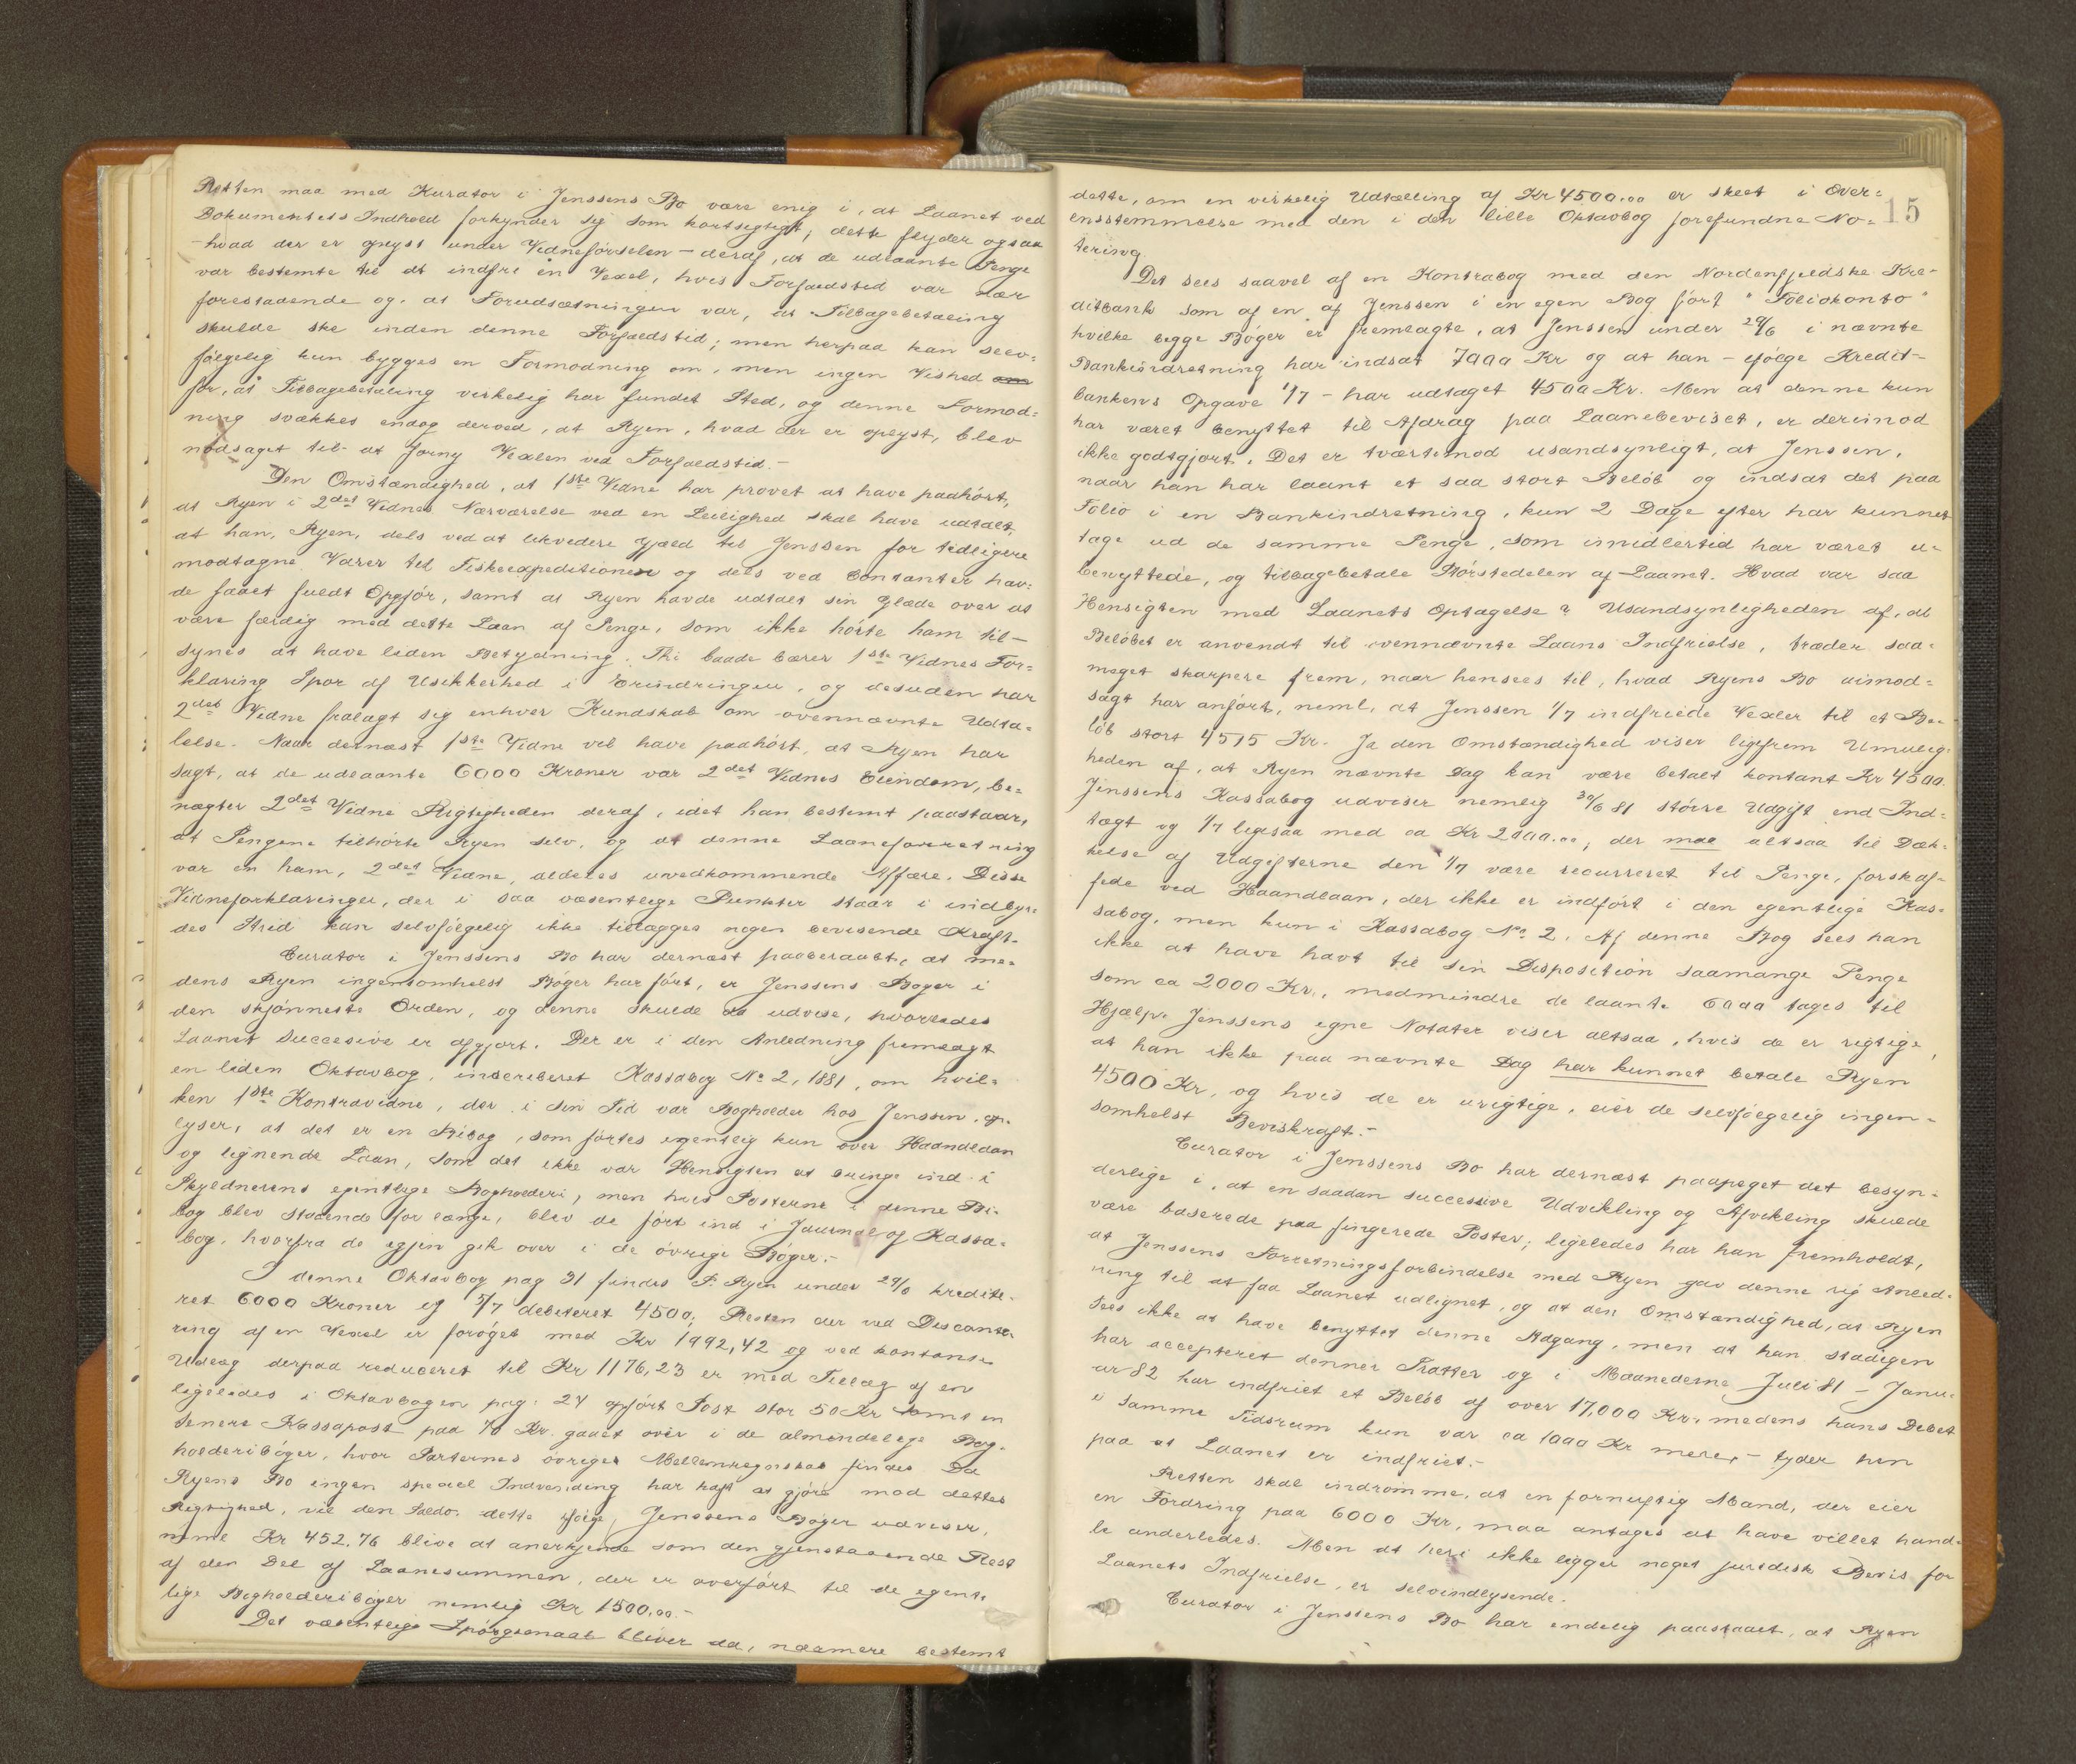 Retten maa med Kurator i Jenssens Bo være enig i, at Laanet ved
Dokumentets Indhold forkynder sig som kortsigtigt; dette flyder ogsaa
- hvad der er oplyst under Vidneførselen - deraf, at de udlaante Penge
var bestemte til at indfri en Vexel, hvis Forfaldstid var nær
forestaaende og, at Forudsætningen var, at Tilbagebetaling
skulde ske inden denne Forfaldstid; men herpaa kan selv=
følgelig kun bygges en Formodning om, men ingen Vished om
for, at Tilbagebetaling virkelig har fundet Sted, og denne Formod=
ning svækkes endog derved, at Ryen, hvad der er oplyst, blev
nødsaget til at forny Vexlen ved Forfaldstid.-
Den Omstændighed, at 1ste Vidne har prøvet at have paahørt,
at Ryen i 2det Vidnes Nærværelse ved en Leilighed skal have udtalt,
at han, Ryen, dels ved at likvidere Gjæld til Jenssen for tidligere
modtagne Varer til Fiskeexpeditionen og dels ved Contanter hav=
de faaet fuldt Opgjør, samt at Ryen havde udtalt sin Glæde over at
være færdig med dette Laan af Penge, som ikke hørte ham til -
synes at have liden Betydning. Thi baade bærer 1ste Vidnes For=
klaring Spor af Usikkerhed i Erindringen, og desuden har
2det Vidne fralagt sig enhver Kundskab om ovennævnte Udta=
lelse. Naar dernæst 1ste Vidne vil have paahørt, at Ryen har
sagt, at de udlaante 6000 Kroner var 2det Vidnes Eiendom, be=
nægter 2det Vidne Rigtigheden deraf, idet han bestemt paastaar,
at Pengene tilhørte Ryen selv, og at denne Laaneforretning
var en ham, 2det Vidne, aldeles uvedkommende Affære. Disse
Vidneforklaringer, der i saa væsentlige Punkter staar i indbyr=
des Strid kan selvfølgelig ikke tillægges nogen bevisende Kraft.
Curator i Jenssens Bo har dernæst paaberaabt, at me=
dens Ryen ingensomhelst Bøger har ført, er Jenssens Bøger i
den skjønneste Orden, og denne skulde udvise, hvorledes
Laanet succesive er afgjort. Der er i den Anledning fremlagt
en liden Oktavbog, inscriberet Kassabog No 2, 1881, om hvil=
ken 1ste Kontravidne, der i sin Tid var Bogholder hos Jenssen, op=
lyser, at det er en Bibog, som førtes egentlig kun over Haandlaan
og lignende Laan, som det ikke var Hensigten at bringe ind i
Skyldnerens egentlige Bogholderi, men hvis Posterne i denne Bi=
bog blev staaende for længe, blev de ført ind i Journal og Kassa=
bog, hvorfra de igjen gik over i de øvrige Bøger.-
I denne Oktavbog pag 31 findes P. Ryen under 29/6 kredite=
ret 6000 Kroner og 1/7 debiteret 4500; Resten der ved Disconte=
ring af en Vexel er forøget med Kr 1992,42 og ved kontante
Udlæg derpaa reduceret til Kr 1176,23 er med Tillæg af en
ligeledes i Oktavbogen pag. 24 opført Post stor 50 Kr samt en
senere Kassapost paa 70 Kr. gaaet over i de almindelige Bog=
holderibøger, hvor Parternes øvriges Mellemregnskab findes. Da
Ryens Bo ingen speciel Indvending har haft at gjøre mod dettes
Rigtighed, vil den Saldo, dette ifølge Jenssens Bøger udviser,
Kr 452,76 blive at anerkjende som den gjenstaaende Rest
af den Del af Laanesummen, der er overført til de egent=
lige Bogholderibøger nemlig Kr 1500,00.-
Det væsentlige Spørgsmaal bliver da, nærmere bestemt
15
dette, om en virkelig Udtælling af Kr 4500,00 er skeet i Over=
ensstemmelse med den i den lille Oktavbog forefundne No=
tering.
Det sees saavel af en Kontrabog med den Nordenfjeldske Kre=
ditbank som af en af Jenssen i en egen Bog ført "Foliokonto"
hvilke begge Bøger er fremlagte, at Jenssen under 29/6 i nævnte
Bankindretning har indsat 7000 Kr og at han - ifølge Kredit=
bankens Opgave 1/7 - har udtaget 4500 Kr. Men at denne kun
har været benyttet til Afdrag paa Laanebeviset, er derimod
ikke godtgjort. Det er tværtimod usandsynligt, at Jenssen,
naar han har laant et saa stort Beløb og indsat det paa
Folio i en Bankindretning, kun 2 Dage efter har kunnet
tage ud de samme Penge, som imidlertid har været u=
benyttede, og tilbagebetale Størstedelen af Laanet. Hvad var saa
Hensigten med Laanets Optagelse? Usandsynligheden af, at
Beløbet er anvendt til ovennævnte Laans Indfrielse, træder saa=
meget skarpere frem, naar hensees til, hvad Ryens Bo uimod=
sagt har anført, neml, at Jenssen 1/7 indfriede Vexler til et Be=
løb stort 4515 Kr. Ja den Omstændighed viser ligefrem Umulig=
heden af, at Ryen nævnte Dag kan være betalt kontant Kr 4500.
Jenssens Kassabog udviser nemlig 30/6 81 større Udgift end Ind=
tægt og 1/7 ligesaa med ca Kr 2000,00; der maa altsaa til Dæk=
kelse af Udgifterne den 1/7 være recurreret til Penge, forskaf=
fede ved Haandlaan, der ikke er indført i den egentlige Kas=
sabog, men kun i Kassabog No 2. Af denne Bog sees han
ikke at have havt til sin Disposition saamange Penge
som ca 2000 Kr., medmindre de laante 6000 tages til
Hjælp. Jenssens egne Notater viser altsaa, hvis de er rigtige,
at han ikke paa nævnte Dag har kunnet betale Ryen
4500 Kr, og hvis de er urigtige, eier de selvfølgelig ingen=
somhelst Beviskraft.-
Curator i Jenssens Bo har dernæst paapeget det besyn=
derlige i, at en saadan successive Udvikling og Afvikling skulde
være baserede paa fingerede Poster; ligeledes har han fremholdt,
at Jenssens Forretningsforbindelse med Ryen gav denne rig Anled=
ning til at faa Laanet udlignet, og at den Omstændighed, at Ryen
sees ikke at have benyttet denne Adgang, men at han stadigen
har accepteret dennes Tratter og i Maanederne Juli 81 - Janu=
ar 82 har indfriet et Beløb af over 17,000 Kr. medens hans Debet
i samme Tidsrum kun var ca 1000 Kr mere, - tyder hen
paa at Laanet er indfriet.-
Retten skal indrømme, at en fornuftig Mand, der eier
en Fordring paa 6000 Kr, maa antages at have villet hand=
le anderledes. Men at heri ikke ligger noget juridisk Bevis for
Laanets Indfrielse, er selvindlysende.
Curator i Jenssens Bo har endelig paastaaet, at Ryen